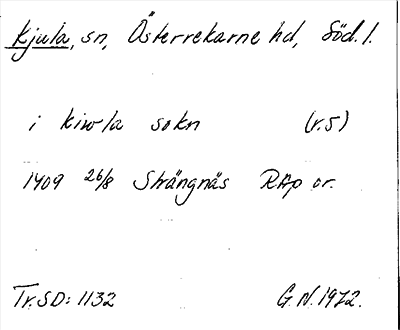 Kjula, sn, Österrekarne hd, Söd. l.
i kiwla sokn (r.5)
1409 26/8 Strängnäs RAp or.
Tr. SD: 1132 G.N. 1972.